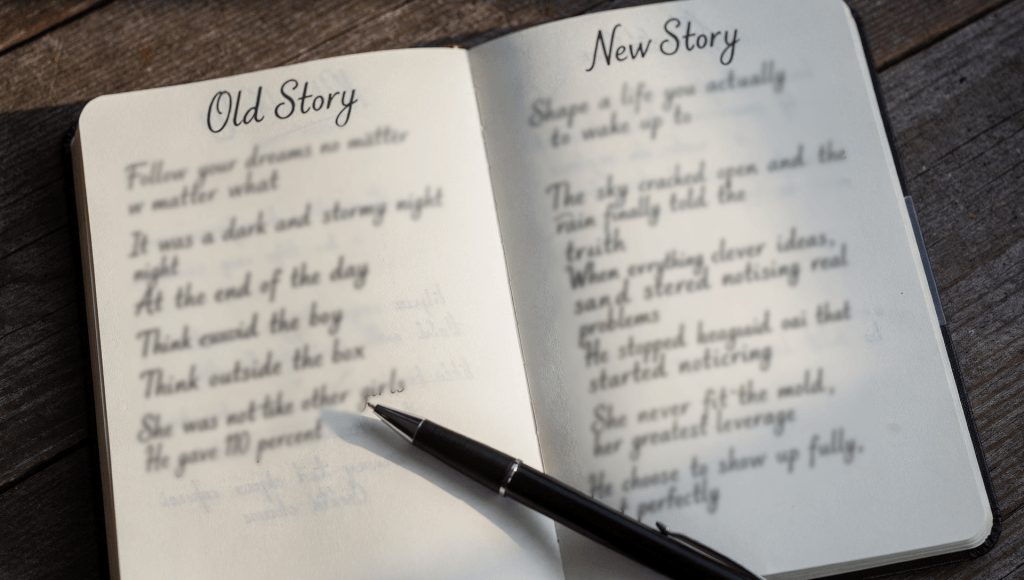 Old Story
Follow your dreams no matter
w matter what
It was a dark and stormy night
night
At the end of the day
Think the boy
Think outside the box
She was not like other girls
He gave 110 percent
New Story
Shape a life you actually
to wake up to
The sky cracked open and the
rain finally told the
truth
When clever ideas,
real
problems
He stopped that
started
She never fit the mold,
her greatest leverage
He choose to show up fully,
perfectly